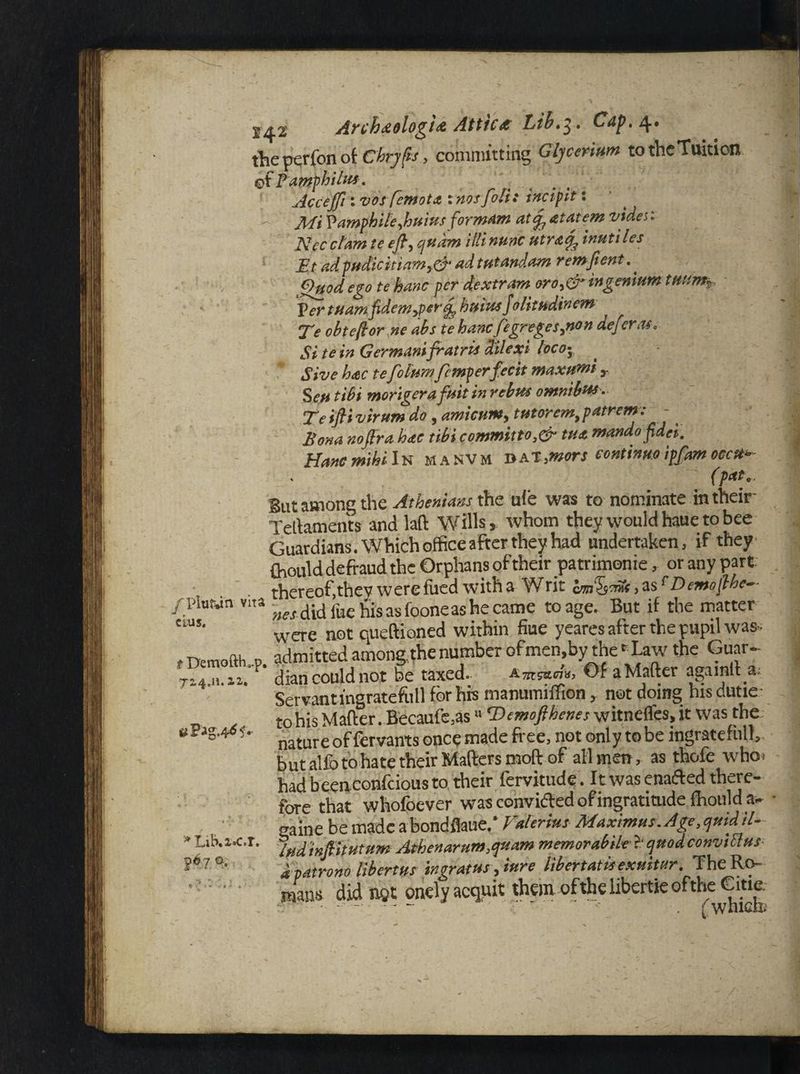 142 Archæologiæ Atticæ Lib.3. Cap. 4.
the perſon of Chryſis, committing Glycerium to the Tuition
of Pamphilus.
Acceſſi: vos ſemotæ: nos ſoli: incipit:
Mi Pamphile, huius formam atq, ætatem vides:
Nec clam te eſt, quàm illi nunc utræq, inutiles
Et ad pudicitiam, & ad tutandam rem ſient.
Quod ego te hanc per dextram oro, & ingenium tuum,
Per tuam fidem, perq, huius ſolitudinem
Te obteſtor ne abs te hanc ſegreges, non deſeras.
Si te in Germani fratris dilexi loco;
Sive hæc te ſolum ſemper fecit maxumi,
Seu tibi morigera fuit in rebus omnibus.
Te iſti virum do, amicum, tutorem, patrem:
Bona noſtra hæc tibi committo, & tuæ mando fidei.
Hanc mihi In MANVM DAT, mors continuo ipſam occu-
(pat.
But among the Athenians the uſe was to nominate in their
Teſtaments and laſt Wills, whom they would haue to bee
Guardians. Which office after they had undertaken, if they
ſhould defraud the Orphans of their patrimonie, or any part
thereof, they were ſued with a Writ ἐπιτροπῆς, as ſ Demoſthe-
ſ Plut. in vita
eius.
nes did ſue his as ſoone as he came to age. But if the matter
were not queſtioned within fiue yeares after the pupil was
t Demoſth. p.
724. n. 22.
admitted among the number of men, by the t Law the Guar-
dian could not be taxed. Ἀποστασίου, Of a Maſter againſt a
Servant ingratefull for his manumiſſion, not doing his dutie
to his Maſter. Becauſe, as u Demoſthenes witneſſes, it was the
u Pag. 465.
nature of ſervants once made free, not only to be ingratefull,
but alſo to hate their Maſters moſt of all men, as thoſe who
had been conſcious to their ſervitude. It was enacted there-
fore that whoſoever was convicted of ingratitude ſhould a-
gaine be made a bondſlaue.* Valerius Maximus. Age, quid il-
* Lib. 2. c. 1.
lud inſtitutum Athenarum, quam memorabile? quod convictus
à patrono libertus ingratus, iure libertatis exuitur. The Ro-
mans did not onely acquit them of the libertie of the Citie
(which